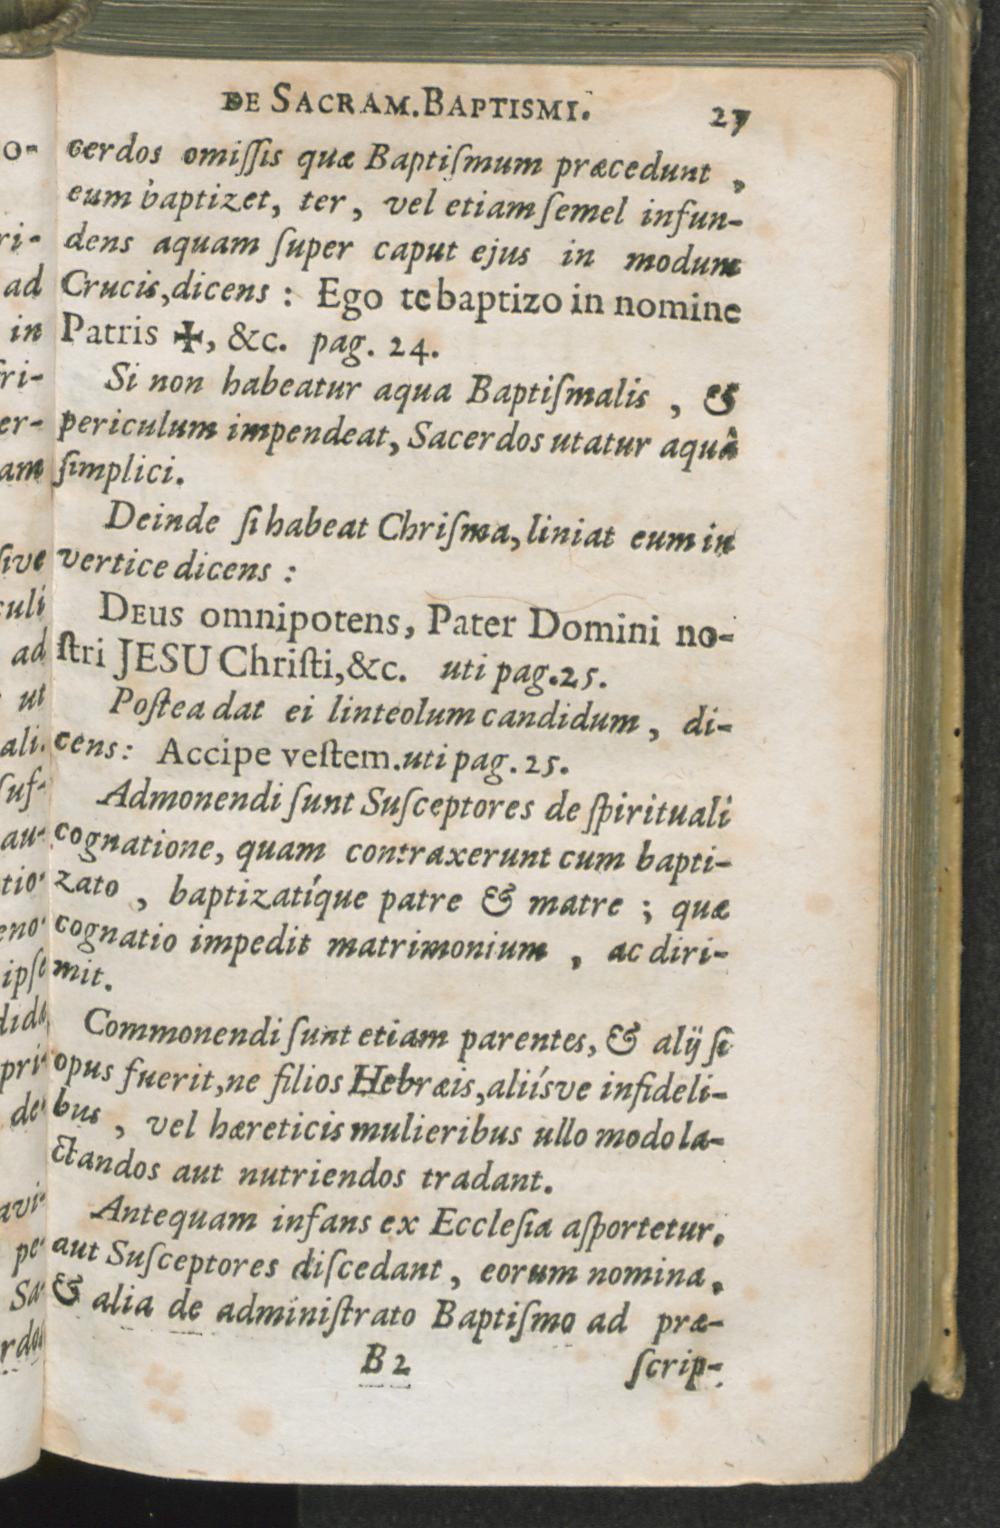 DE SACRAM. BAPTISMI. 27
cerdos omiſſis quæ Baptiſmum præcedunt,
eum baptizet, ter, vel etiam ſemel infun-
dens aquam ſuper caput ejus in modum
Crucis, dicens: Ego te baptizo in nomine
Patris ✠, &c. pag. 24.
Si non habeatur aqua Baptiſmalis, &
periculum impendeat, Sacerdos utatur aquâ
ſimplici.
Deinde ſi habeat Chriſma, liniat eum in
vertice dicens:
DEus omnipotens, Pater Domini no-
ſtri JESU Chriſti, &c. uti pag. 25.
Poſtea dat ei linteolum candidum, di-
cens: Accipe veſtem. uti pag. 25.
Admonendi ſunt Suſceptores de ſpirituali
cognatione, quam contraxerunt cum bapti-
zato, baptizatíque patre & matre; quæ
cognatio impedit matrimonium, ac diri-
mit.
Commonendi ſunt etiam parentes, & alij ſi
opus fuerit, ne filios Hebræis, aliíſve infideli-
bus, vel hæreticis mulieribus ullo modo la-
ctandos aut nutriendos tradant.
Antequam infans ex Eccleſia aſportetur,
aut Suſceptores diſcedant, eorum nomina,
& alia de adminiſtrato Baptiſmo ad præ-
B 2 ſcrip-
o-
ri-
ad
in
fri-
er-
am
ſive
culi
ad
ut
ali.
ſuſ-
au-
tio-
eno-
ipſe
dida
pri-
de-
avi-
pe-
Sa-
rdos